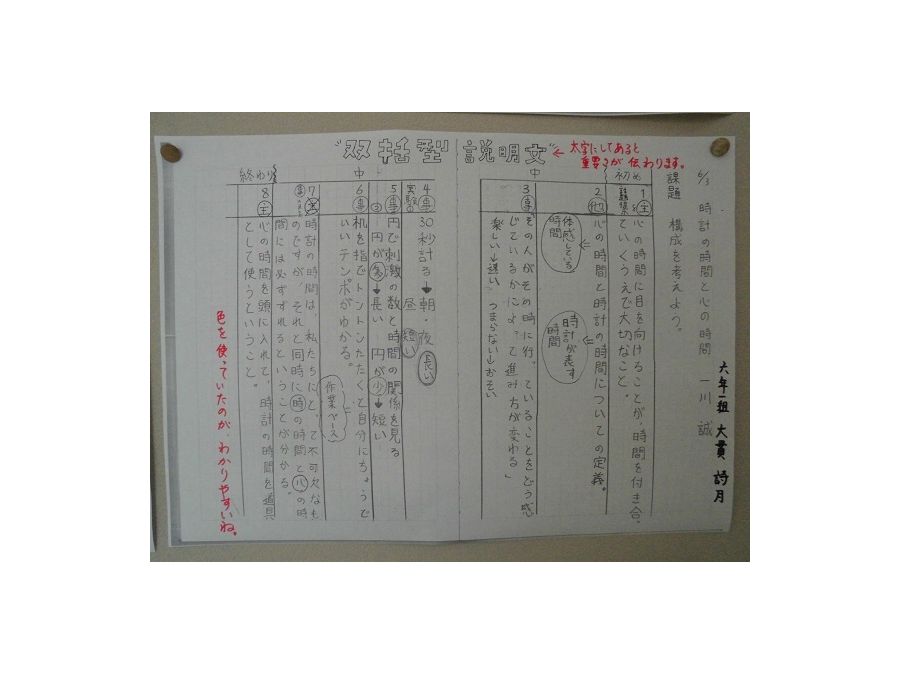 六年一組 大貫 詩月
6/3 時計の時間と心の時間 一川 誠
課題 構成を考えよう。
"双括型"説明文
←太字にしてあると
重要さが伝わります。
初め
1 主
心の時間に目を向けることが、時間を付き合っ
ていくうえで大切なこと。
中
2
心の時間と時計の時間についての定義。
体感している
時間
時計が表す
時間
3 事
「その人がその時に行っていることをどう感
じているかによって進み方が変わる」
楽しい→速い つまらない→おそい
中
4 事
実験
30秒計る→朝・夜 長い
昼 短い
5 事
円で刺激の数と時間の関係を見る
円が多→長い 円が少→短い
6 事
机を指でトントンたたくと自分にちょうど
いいテンポがわかる。
作業ペース
終わり
7
時計の時間は、私たちにとって不可欠なも
のですが、それと同時に時の時間と心の時
間には必ずずれるということが分かる。
8 主
心の時間を頭に入れて、時計の時間を道具
として使うということ。
色を使っていたのが、わかりやすいね。